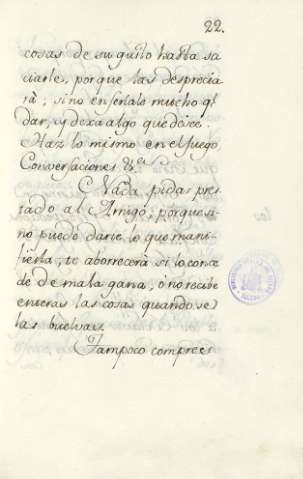 22.
cosas de su gusto hasta sa
ciarle, porque las desprecia
rà; sino enseñale mucho q.e
dar, y dexa algo que desee.
Haz lo mismo en el juego
Conversaciones &.a
Nada pidas pres
tado al Amigo; porque si
no puede darte lo que mani
fiesta, te aborrecerà si lo conce
de de mala gana, ò no recibe
enteras las cosas quando se
las buelvas
Tampoco compres